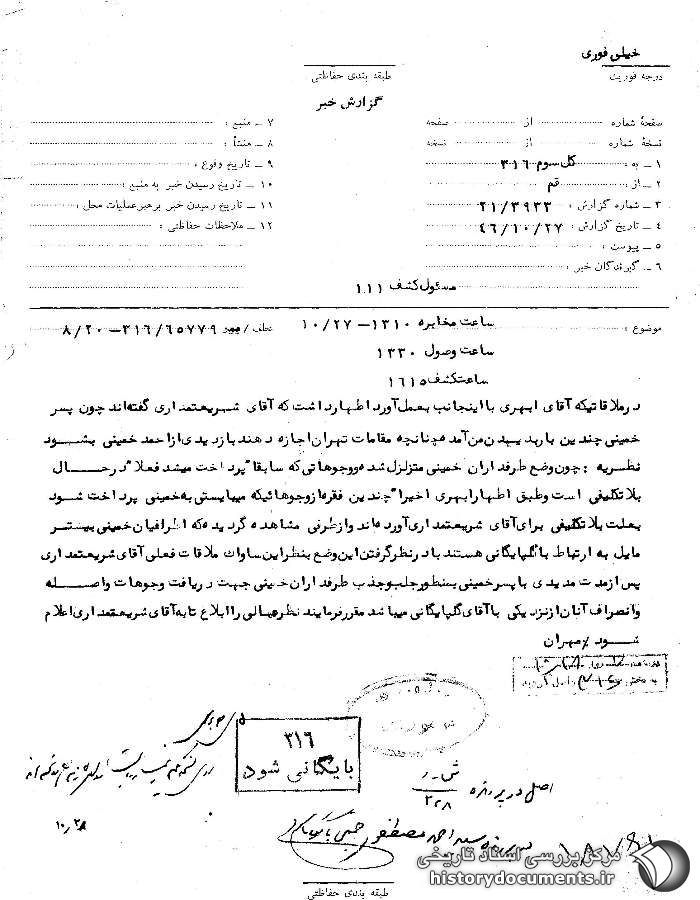 خیلی فوری
درجه فوریت
طبقه بندی حفاظتی
گزارش خبر
صفحهٔ شماره از صفحه
نسخهٔ شماره از نسخه
۱ ــ به : کل سوم ۳۱۶
۲ ــ از : قم
۳ ــ شماره گزارش : ۲۱/۳۹۳۳
۴ ــ تاریخ گزارش : ۴۶/۱۰/۲۷
۵ ــ پیوست :
۶ ــ گیرندگان خبر :
۷ ــ منبع :
۸ ــ منشأ :
۹ ــ تاریخ وقوع :
۱۰ ــ تاریخ رسیدن خبر به منبع :
۱۱ ــ تاریخ رسیدن خبر برهبرعملیات محل :
۱۲ ــ ملاحظات حفاظتی :
مسئول کشف ۱۱۱
موضوع : ساعت مخابره ۱۳۱۰ – ۱۰/۲۷ عطف / ۳۱۶/۶۵۷۷۹ – ۸/۲۰
ساعت وصول ۱۳۳۰
ساعت کشف ۱۶۱۵
در ملاقاتیکه آقای ابهری با اینجانب بعمل آورد اظهار داشت که آقای شریعتمداری گفته اند چون پسر
خمینی چندین بار بدیدن من آمده چنانچه مقامات تهران اجازه دهند بازدیدی از احمد خمینی بشود
نظریه : چون وضع طرفداران خمینی متزلزل شده و وجوهاتی که سابقا" پرداخت میشد فعلا" در حال
بلاتکلیفی است و طبق اظهار ابهری اخیرا" چندین فقره از وجوهاتیکه میبایستی به خمینی پرداخت شود
بعلت بلاتکلیفی برای آقای شریعتمداری آورده اند و از طرفی مشاهده گردیده که اطرافیان خمینی بیشتر
مایل به ارتباط با گلپایگانی هستند با در نظر گرفتن این وضع بنظر این ساواک ملاقات فعلی آقای شریعتمداری
پس از مدت مدیدی با پسر خمینی بمنظور جلب و جذب طرفداران خمینی جهت دریافت وجوهات واصله
و انصراف آنان از نزدیکی با آقای گلپایگانی میباشد مقرر فرمایند نظر عالی را ابلاغ تا به آقای شریعتمداری اعلام
شود / مهران
۳۱۶
بایگانی شود
اصل در پرونده
۱۰/۲۸
در پرونده سید احمد مصطفوی خمینی بایگانی
مرکز بررسی اسناد تاریخی
historydocuments.ir
طبقه بندی حفاظتی